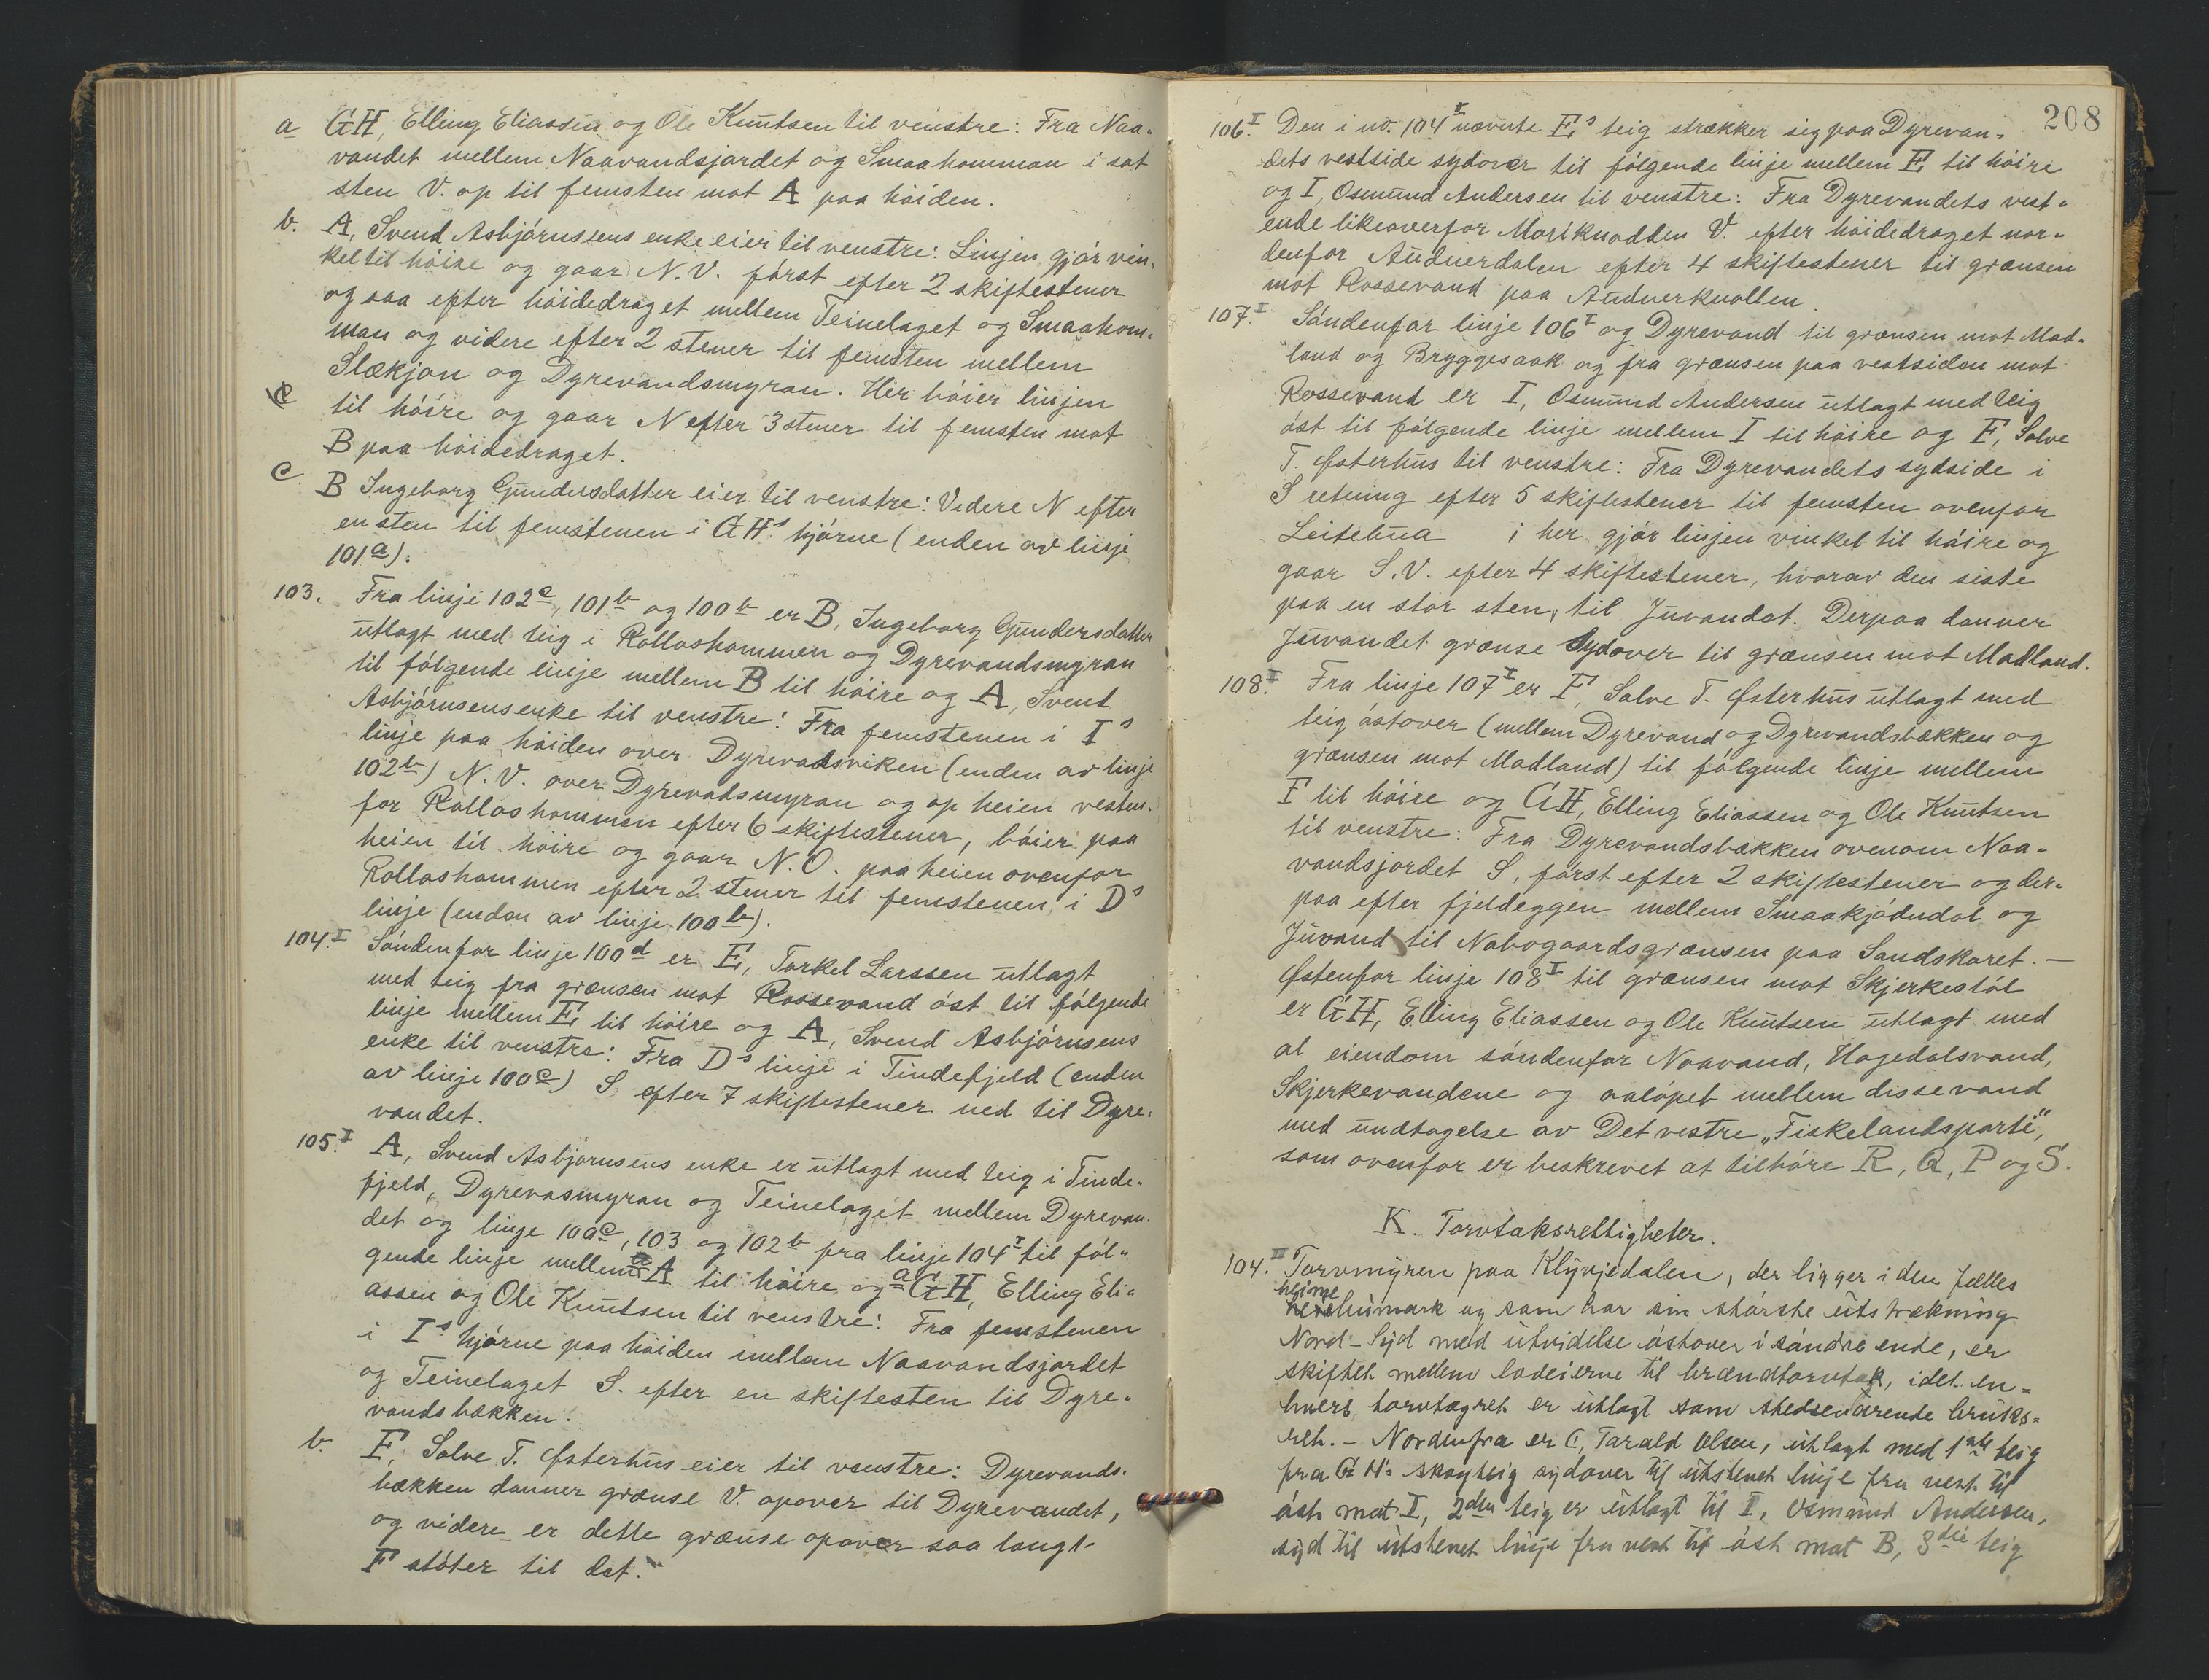 a GH, Elling Eliassen og Ole Knutsen til venstre: Fra Naa-
vandet mellem Naavandsjordet og Smaahomman i sat
sten V. op til femsten mot A paa høiden.
b. A, Svend Asbjørnsens enke eier til venstre: Linjen gjør vin-
kel til høire og gaar N.V. først efter 2 skiftestener
og saa efter høidedraget mellem Teinelaget og Smaahom-
man og videre efter 2 stener til femsten mellem
Slækjan og Dyrevandsmyran. Her bøier linjen
til høire og gaar N efter 3 stener til femsten mot
B paa høidedraget.
c. B Ingeborg Gundersdatter eier til venstre: Videre N efter
en sten til femstenen i GHs hjørne (enden av linje
101a).
103. Fra linje 102c, 101b og 100b er B, Ingeborg Gundersdatter
utlagt med teig i Rolloshommen og Dyrevandsmyran
til følgende linje mellem B til høire og A, Svend
Asbjørnsens enke til venstre: Fra femstenen i Is
linje paa høiden over Dyrevadsviken (enden av linje
102b) N.V. over Dyrevadsmyran og op heien vesten-
for Rolloshommen efter 6 skiftestener, bøier paa
heien til høire og gaar N.O. paa heien ovenfor
Rolloshommen efter 2 stener til femstenen i Ds
linje (enden av linje 100b).
104.I Søndenfor linje 100d er E, Torkel Larssen utlagt
med teig fra grænsen mot Rossevand øst til følgende
linje mellem E til høire og A, Svend Asbjørnsens
enke til venstre: Fra Ds linje i Tindefjeld (enden
av linje 100c) S efter 7 skiftestener ned til Dyre-
vandet.
105.I A, Svend Asbjørnsens enke er utlagt med teig i Tinde-
fjeld, Dyrevasmyran og Teinelaget mellem Dyrevan-
det og linje 100c, 103 og 102b fra linje 104I til føl-
gende linje mellem A til høire og a GH, Elling Eli-
assen og Ole Knutsen til venstre: Fra femstenen
i Is hjørne paa høiden mellem Naavandsjordet
og Teinelaget S. efter en skiftesten til Dyre-
vandsbækken.
b. F, Salve T. Østerhus eier til venstre: Dyrevands-
bækken danner grænse V. opover til Dyrevandet,
og videre er dette grænse opover saa langt
F støter til det.
208
106.I Den i no. 104I nævnte Es teig strækker sig paa Dyrevan-
dets vestside sydover til følgende linje mellem E til høire
og I, Osmund Andersen til venstre: Fra Dyrevandets vest-
ende likeoverfor Moriknodden V. efter høidedraget nor-
denfor Audnerdalen efter 4 skiftestener til grænsen
mot Rossevand paa Audnerknollen.
107.I Søndenfor linje 106I og Dyrevand til grænsen mot Mad-
land og Bryggesaak og fra grænsen paa vestsiden mot
Rossevand er I, Osmund Andersen utlagt med teig
øst til følgende linje mellem I til høire og F, Salve
T. Østerhus til venstre: Fra Dyrevandets sydside i
S retning efter 5 skiftestener til femsten ovenfor
Leitelina ; her gjør linjen vinkel til høire og
gaar S.V. efter 4 skiftestener, hvorav den siste
paa en stor sten, til Juvandet. Derpaa danner
Juvandet grænse sydover til grænsen mot Madland.
108.I Fra linje 107I er F, Salve T. Østerhus utlagt med
teig østover (mellem Dyrevand og Dyrevandsbækken og
grænsen mot Madland) til følgende linje mellem
F til høire og GH, Elling Eliassen og Ole Knutsen
til venstre: Fra Dyrevandsbækken ovenom Naa-
vandsjordet S, først efter 2 skiftestener og der-
paa efter fjeldeggen mellem Smaakjødndal og
Juvand til Nabogaardsgrænsen paa Sandskaret. —
Østenfor linje 108I til grænsen mot Skjerkestøl
er GH, Elling Eliassen og Ole Knutsen utlagt med
al eiendom søndenfor Naavand, Hagedalsvand,
Skjerkevandene og aaløpet mellem disse vand
med undtagelse av Det vestre „Fiskelandsparti",
som ovenfor er beskrevet at tilhøre R, Q, P og S.
K. Torvtaksrettigheter.
104.III Torvmyren paa Klyvjedalen, der ligger i den fælles
heime
humark og som har sin største utstrækning
Nord-Syd med utvidelse østover i søndre ende, er
skiftet mellem lodeierne til brændtorvtak, idet en-
hvers torvtagret er utlagt som stedsevarende bruks-
ret. – Nordenfra er C, Tarald Olsen, utlagt med 1ste teig
fra GHs skogteig sydover til utstenet linje fra vest til
øst mot I, 2den teig er utlagt til I, Osmund Andersen,
syd til utstenet linje fra vest til øst mot B, 3die teig